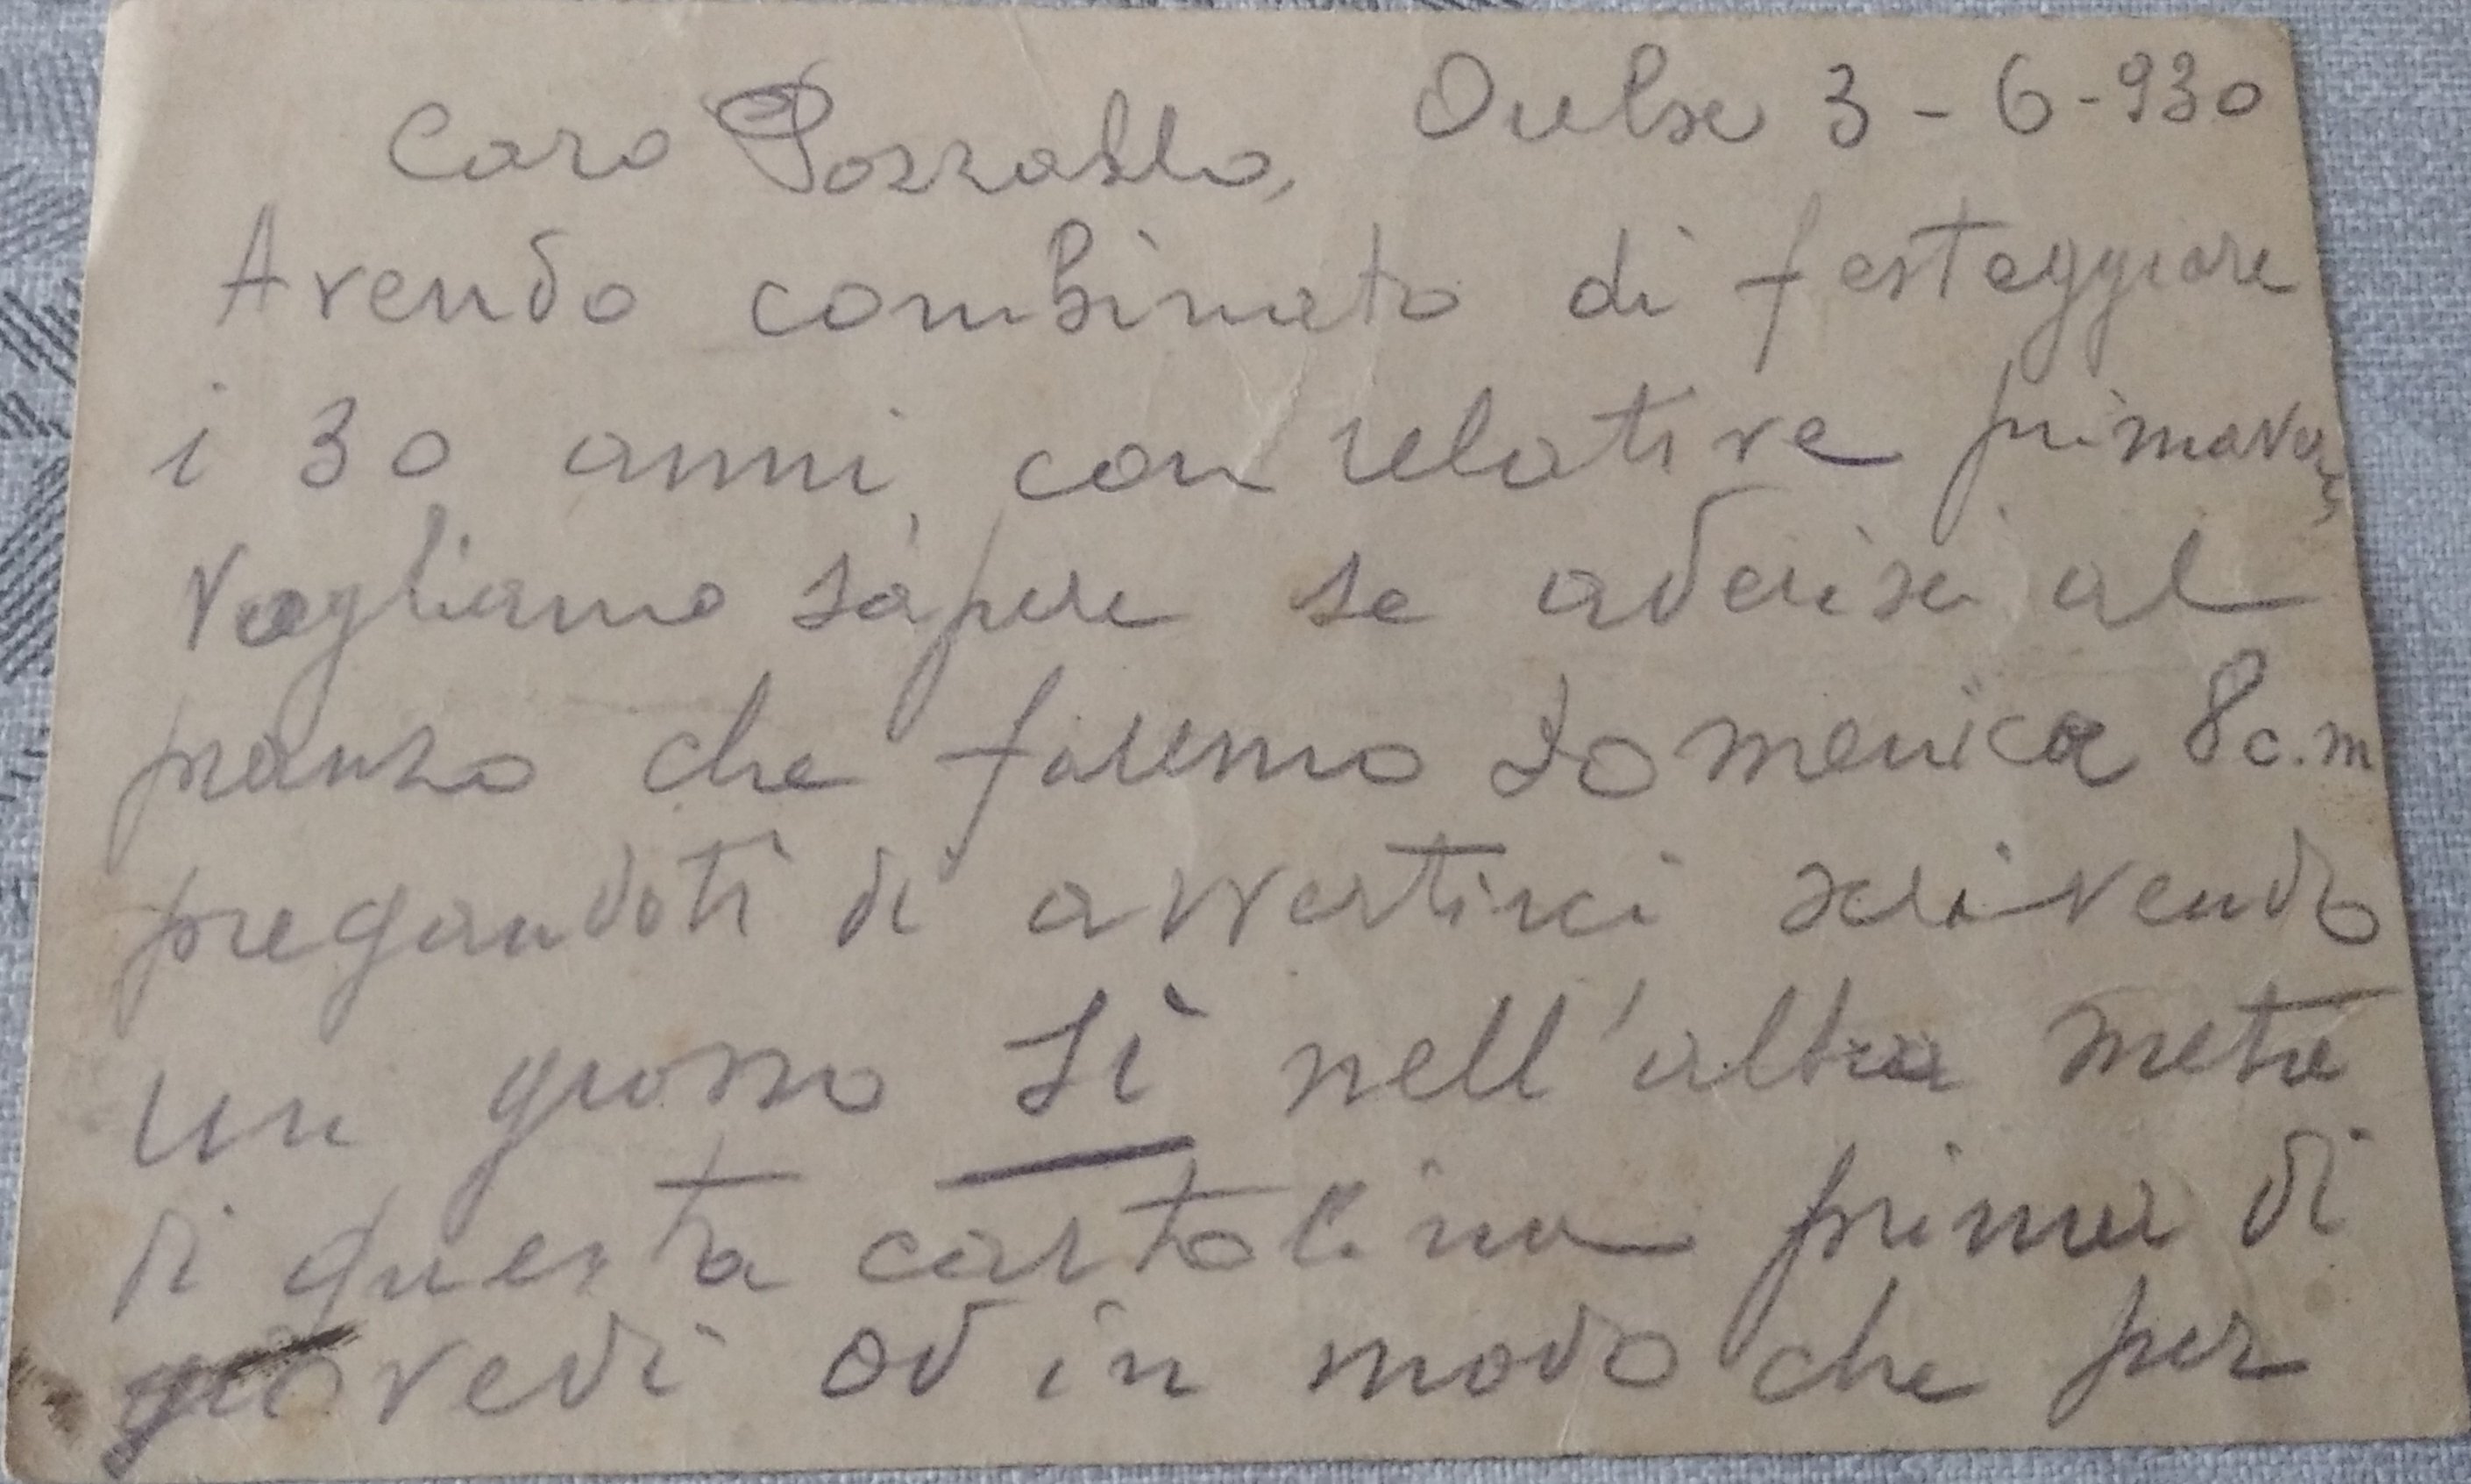 Oulx 3-6-930
Caro Pozzallo,
Avendo combinato di festeggiare
i 30 anni con relative primavere
Vogliamo sapere se aderisci al
pranzo che faremo domenica 8 c.m
pregandoti di avvertirci scrivendo
un grosso sì nell'altra metà
di questa cartolina prima di
giovedì od in modo che per